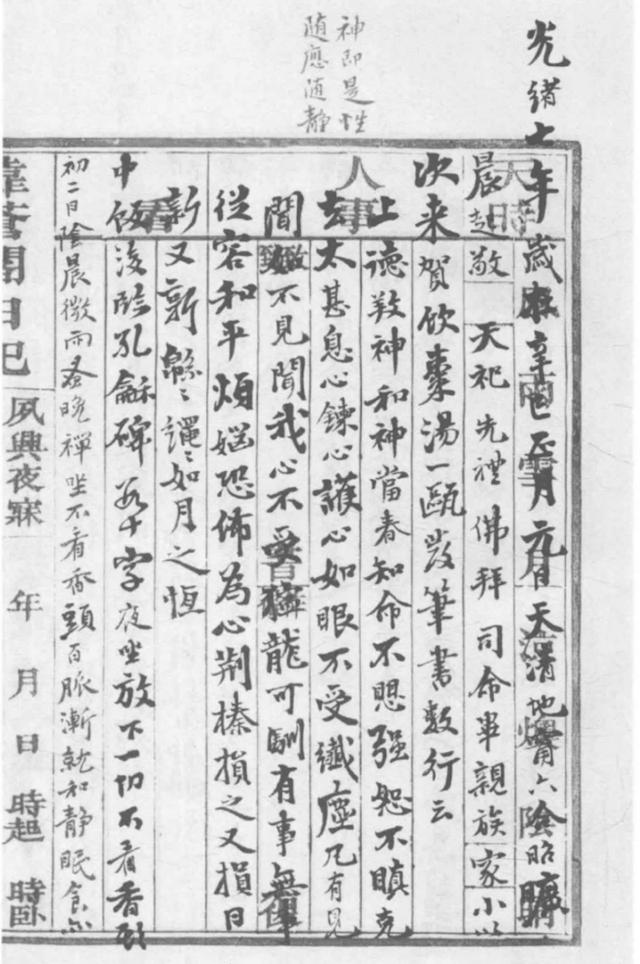 神即是性
随應随静
光緒七年歲在辛巳正月元日天清地甯六陰昭曠
晨起敬天祀先禮佛拜司命畢親族家小以
次来賀飲棗湯一甌發筆書数行云
上德敦神和神當春知命不愳强恕不瞋克
去太甚息心鍊心護心如眼不受纖塵凡有見
聞如不見聞我心不受獰龍可馴有事無事
從容和平煩惱恐怖為心荆榛損之又損日
新又新緜〻繩〻如月之恒
中飯後臨孔龢碑數十字夜坐放下一切不看香頭
初二日陰晨微雨至晚禪坐不看香頭百脈漸就和静眠食亦
日記
夙興夜寐 年 月 日 時起 時卧
天時
人事